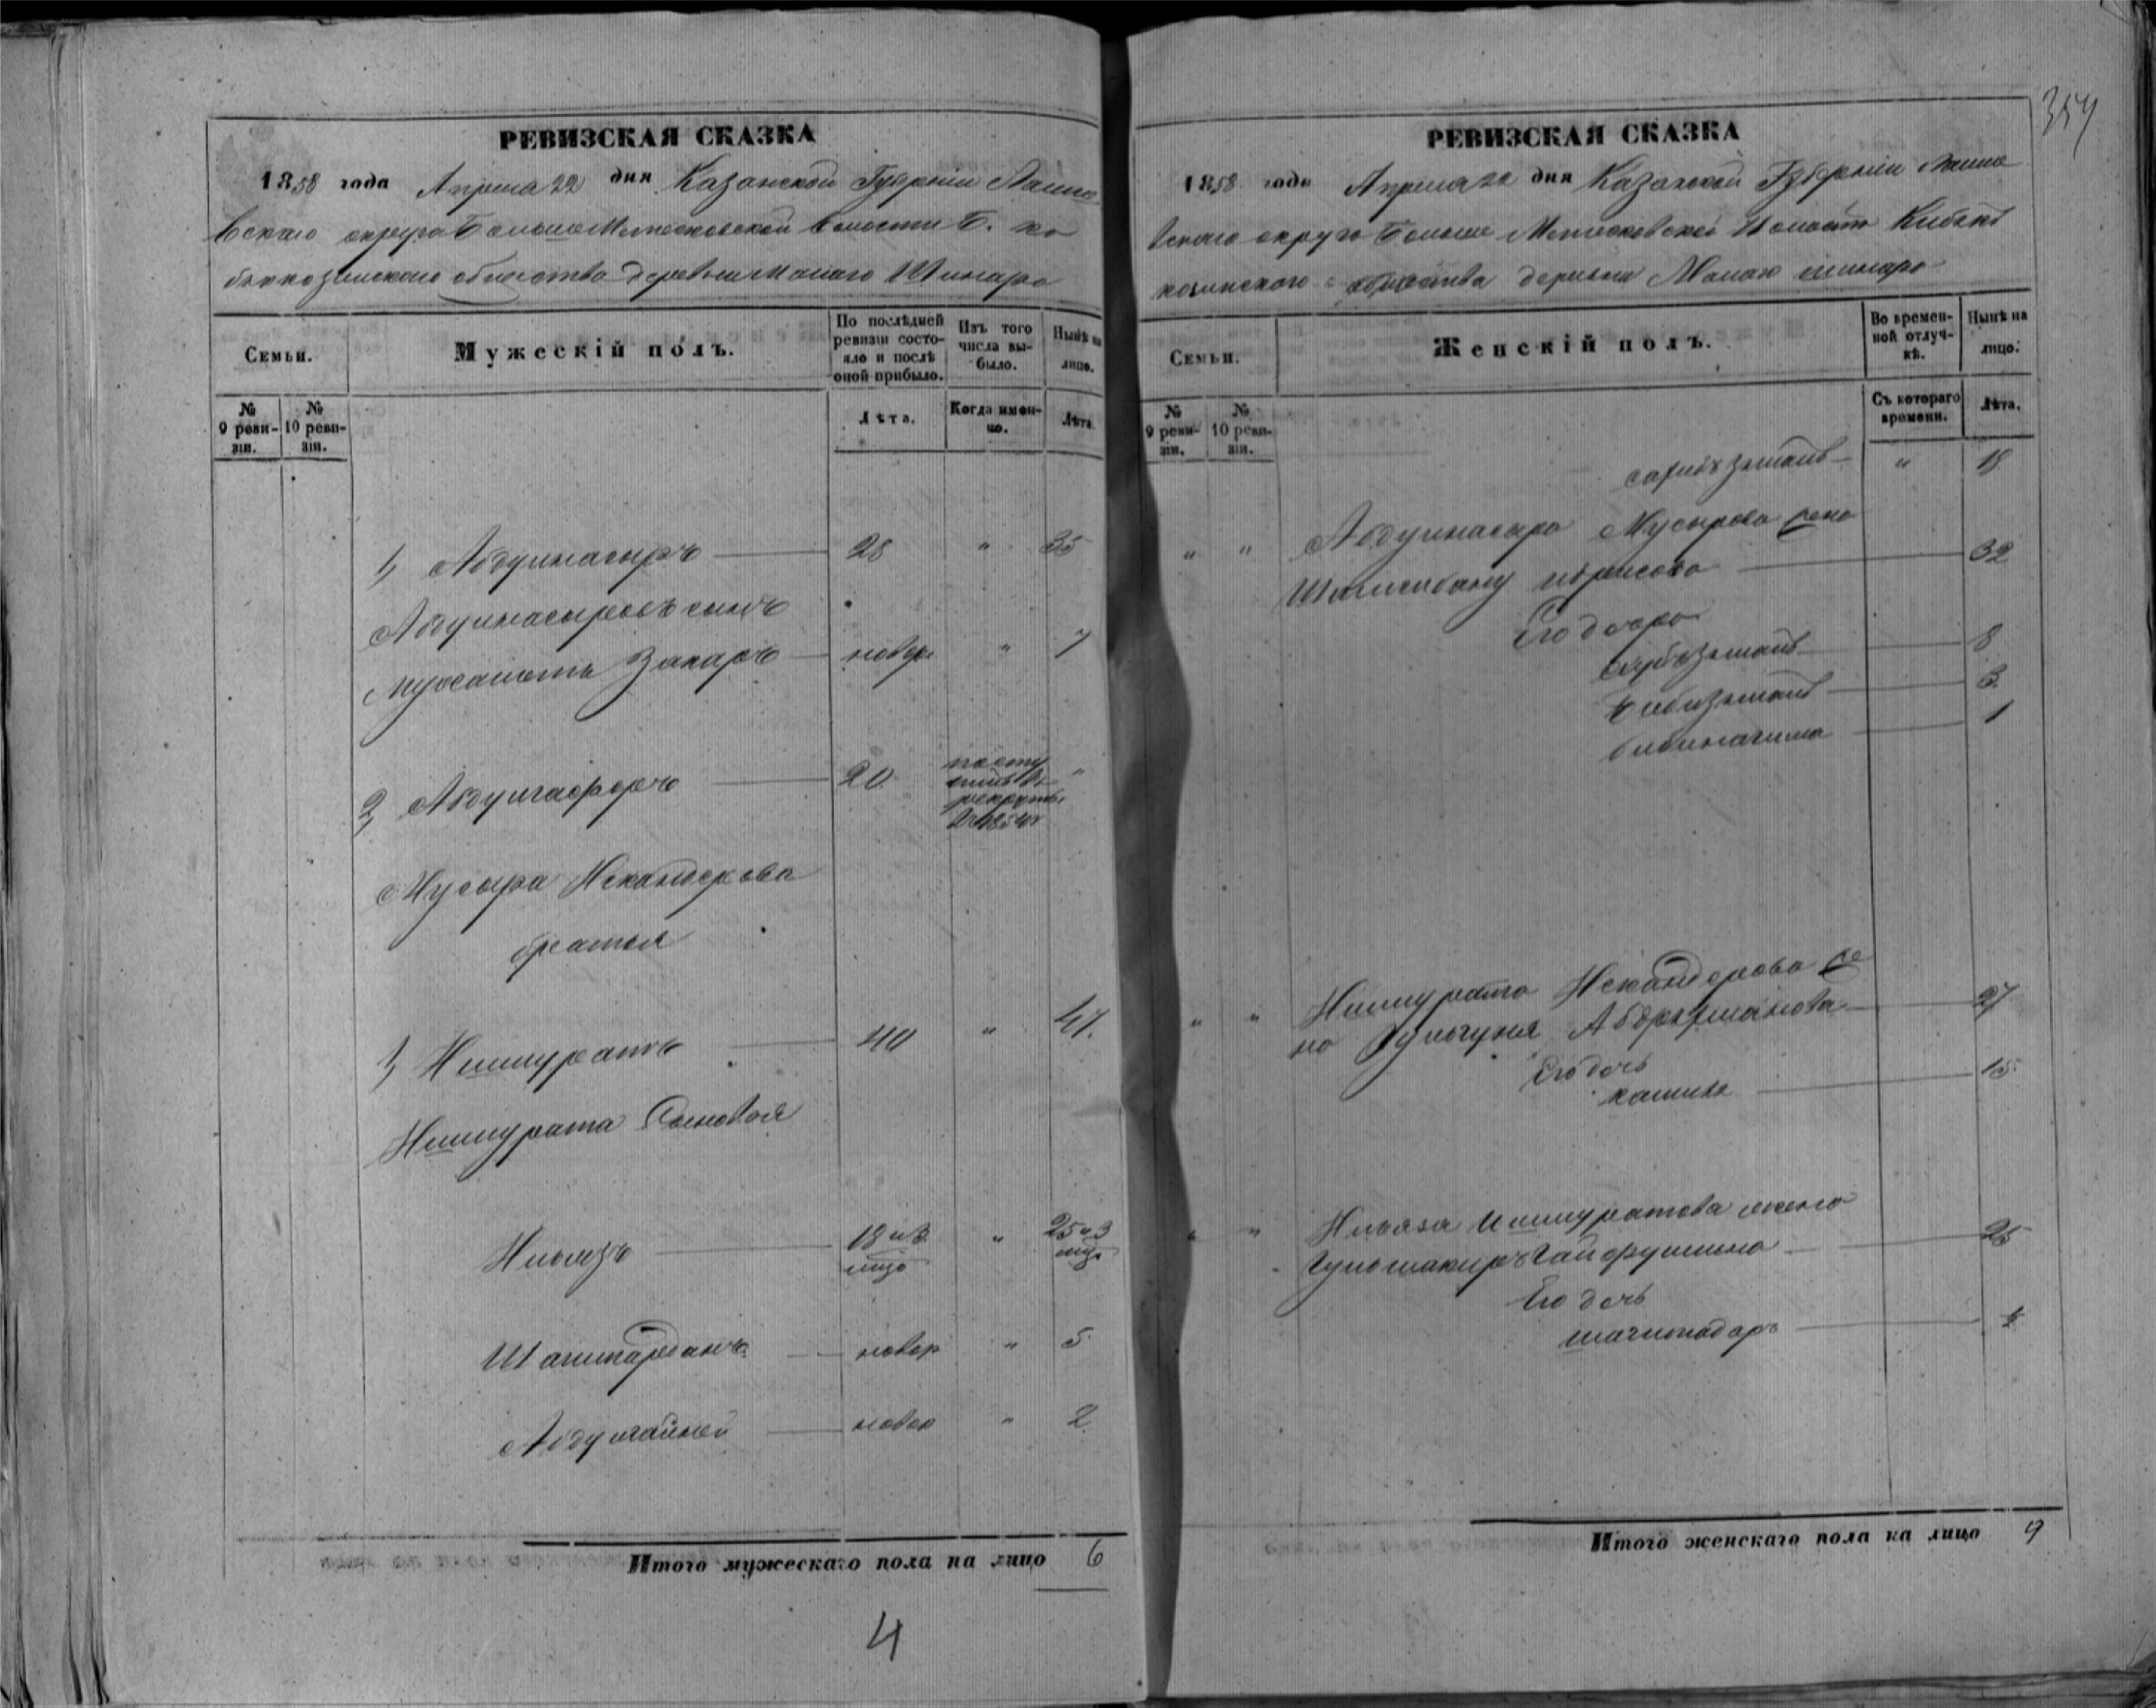 РЕВИЗСКАЯ СКАЗКА
1858 года Апреля 22 дня Казанской Губерніи Лаише
вскаго округа Больше Метесковской волости Б. Ко
общества деревни Малаго Шинара
Семьи.
Мужескій полъ.
По послѣдней ревизіи состояло и послѣ оной прибыло.
Изъ того числа выбыло.
Нынѣ на лицо.
№ 9 ревизіи.
№ 10 ревизіи.
Лѣта.
Когда именно.
Лѣта.
1, Абдулнасыръ 28 " 35
Абдулнасыровъ сынъ
Мухаметь Закиръ новор " 7
2, Абдулгафаръ 20 посту
пилъ въ "
рекруты
въ 1854г
Мусыра Искандерова
братья
1, Ишмуратъ 40 " 47.
Ишмурата сыновья
Ніязъ 18 и 3 " 25 и 3
Шагимарданъ новор " 5
Абдулганей новор " 2
Итого мужескаго пола на лицо 6
4
359
РЕВИЗСКАЯ СКАЗКА
1858 года Апреля 22 дня Казанской Губерніи Лаише
вскаго округа Больше Метесковской Волости
козинского общества деревни Малаго шинара
Семьи.
Женскій полъ.
Во временной отлучкѣ.
Нынѣ на лицо.
№ 9 ревизіи.
№ 10 ревизіи.
Съ котораго времени.
Лѣта.
" 18
" " Абдулнасыра Мусырова жена
Шамсибану Идрисова 32
Его дочери
8
Бибизямалъ 3
1
" " Ишмурата Искандерова же
на Гульгуня Абдрахманова 27
Его дочь
15.
" " Ніяза Ишмуратова жена
Гайфуллина 25
Его дочь
Итого женскаго пола на лицо 9